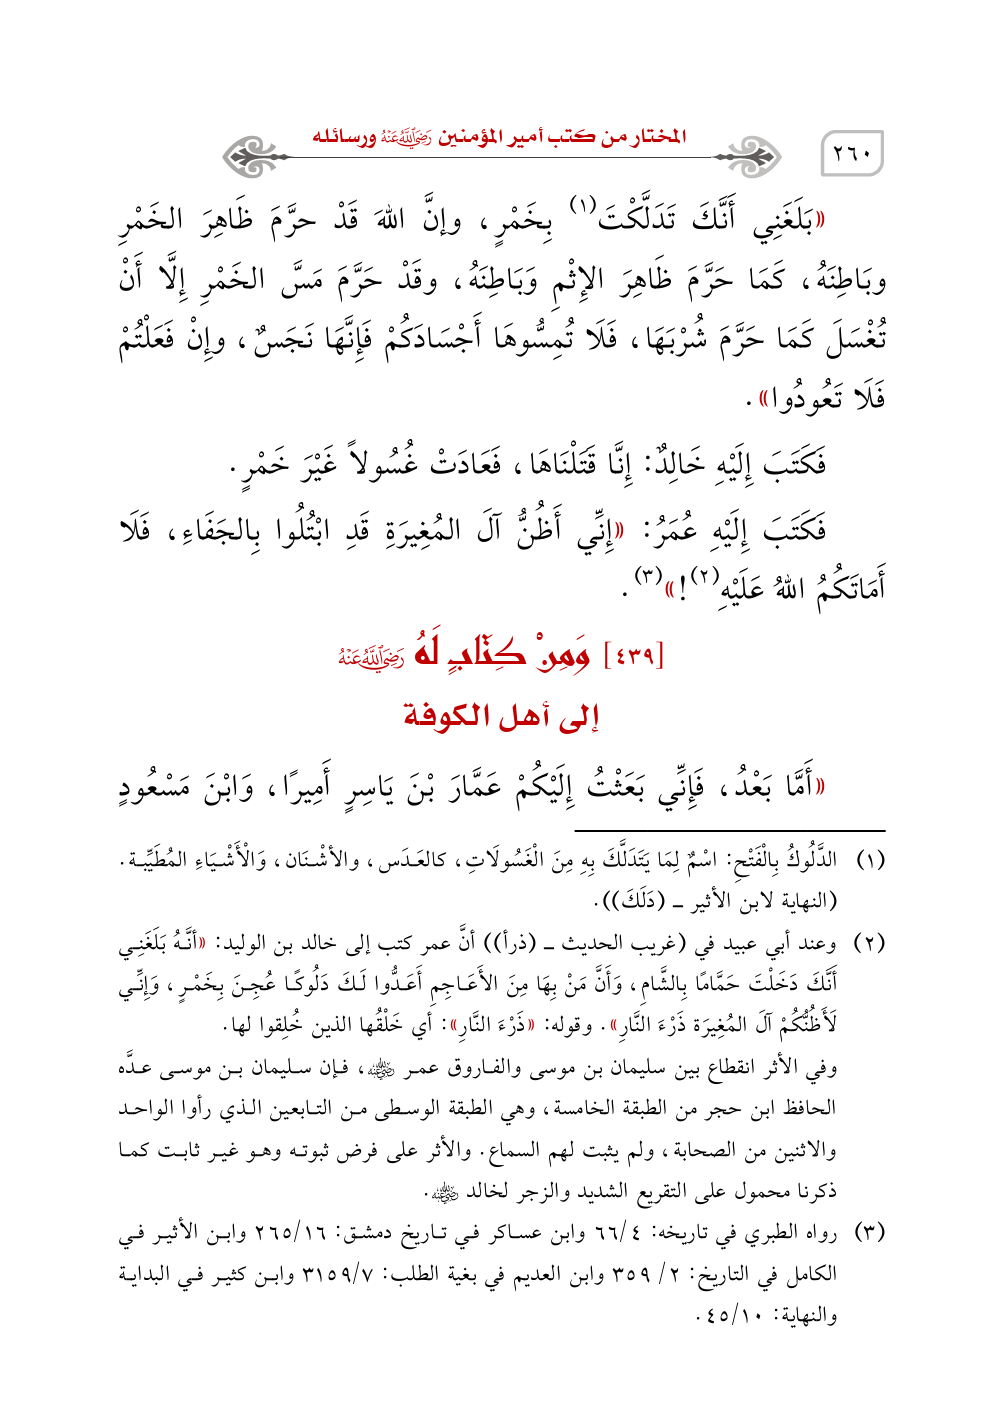 المختار من كتب أمير المؤمنين رَضِيَ اللَّهُ عَنْهُ ورسائله
٢٦٠
«بَلَغَنِي أَنَّكَ تَدَلَّكْتَ(١) بِخَمْرٍ، وإنَّ اللهَ قَدْ حرَّمَ ظَاهِرَ الخَمْرِ
وبَاطِنَهُ، كَمَا حَرَّمَ ظَاهِرَ الإِثْمِ وَبَاطِنَهُ، وقَدْ حَرَّمَ مَسَّ الخَمْرِ إِلَّا أَنْ
تُغْسَلَ كَمَا حَرَّمَ شُرْبَهَا، فَلَا تُمِسُّوهَا أَجْسَادَكُمْ فَإِنَّهَا نَجَسٌ، وإِنْ فَعَلْتُمْ
فَلَا تَعُودُوا».
فَكَتَبَ إِلَيْهِ خَالِدٌ: إِنَّا قَتَلْنَاهَا، فَعَادَتْ غُسُولاً غَيْرَ خَمْرٍ.
فَكَتَبَ إِلَيْهِ عُمَرُ: «إِنِّي أَظُنُّ آلَ المُغِيرَةِ قَدِ ابْتُلُوا بِالجَفَاءِ، فَلَا
أَمَاتَكُمُ اللهُ عَلَيْهِ(٢)!»(٣).
[٤٣٩] وَمِنْ كِتَابٍ لَهُ رَضِيَ اللَّهُ عَنْهُ
إلى أهل الكوفة
«أَمَّا بَعْدُ، فَإِنِّي بَعَثْتُ إِلَيْكُمْ عَمَّارَ بْنَ يَاسِرٍ أَمِيرًا، وَابْنَ مَسْعُودٍ
(١) الدَّلُوكُ بِالْفَتْحِ: اسْمٌ لِمَا يَتَدَلَّكَ بِهِ مِنَ الْغَسُولَاتِ، كالعَدَس، والأشْنَان، وَالْأَشْيَاءِ المُطَيِّبة.
(النهاية لابن الأثير ــ (دَلَكَ)).
(٢) وعند أبي عبيد في (غريب الحديث ــ (ذرأ)) أنَّ عمر كتب إلى خالد بن الوليد: «أنَّهُ بَلَغَنِي
أَنَّكَ دَخَلْتَ حَمَّامًا بِالشَّامِ، وَأَنَّ مَنْ بِهَا مِنَ الأَعَاجِمِ أَعَدُّوا لَكَ دَلُوكًا عُجِنَ بِخَمْرٍ، وَإِنِّي
لَأَظُنُّكُمْ آلَ المُغِيرَة ذَرْءَ النَّارِ». وقوله: «ذَرْءَ النَّارِ»: أي خَلْقُها الذين خُلِقوا لها.
وفي الأثر انقطاع بين سليمان بن موسى والفاروق عمر ﷺ، فإن سليمان بن موسى عدَّه
الحافظ ابن حجر من الطبقة الخامسة، وهي الطبقة الوسطى من التابعين الذي رأوا الواحد
والاثنين من الصحابة، ولم يثبت لهم السماع. والأثر على فرض ثبوته وهو غير ثابت كما
ذكرنا محمول على التقريع الشديد والزجر لخالد ﷺ.
(٣) رواه الطبري في تاريخه: ٦٦/٤ وابن عساكر في تاريخ دمشق: ٢٦٥/١٦ وابن الأثير في
الكامل في التاريخ: ٢/ ٣٥٩ وابن العديم في بغية الطلب: ٣١٥٩/٧ وابن كثير في البداية
والنهاية: ٤٥/١٠.